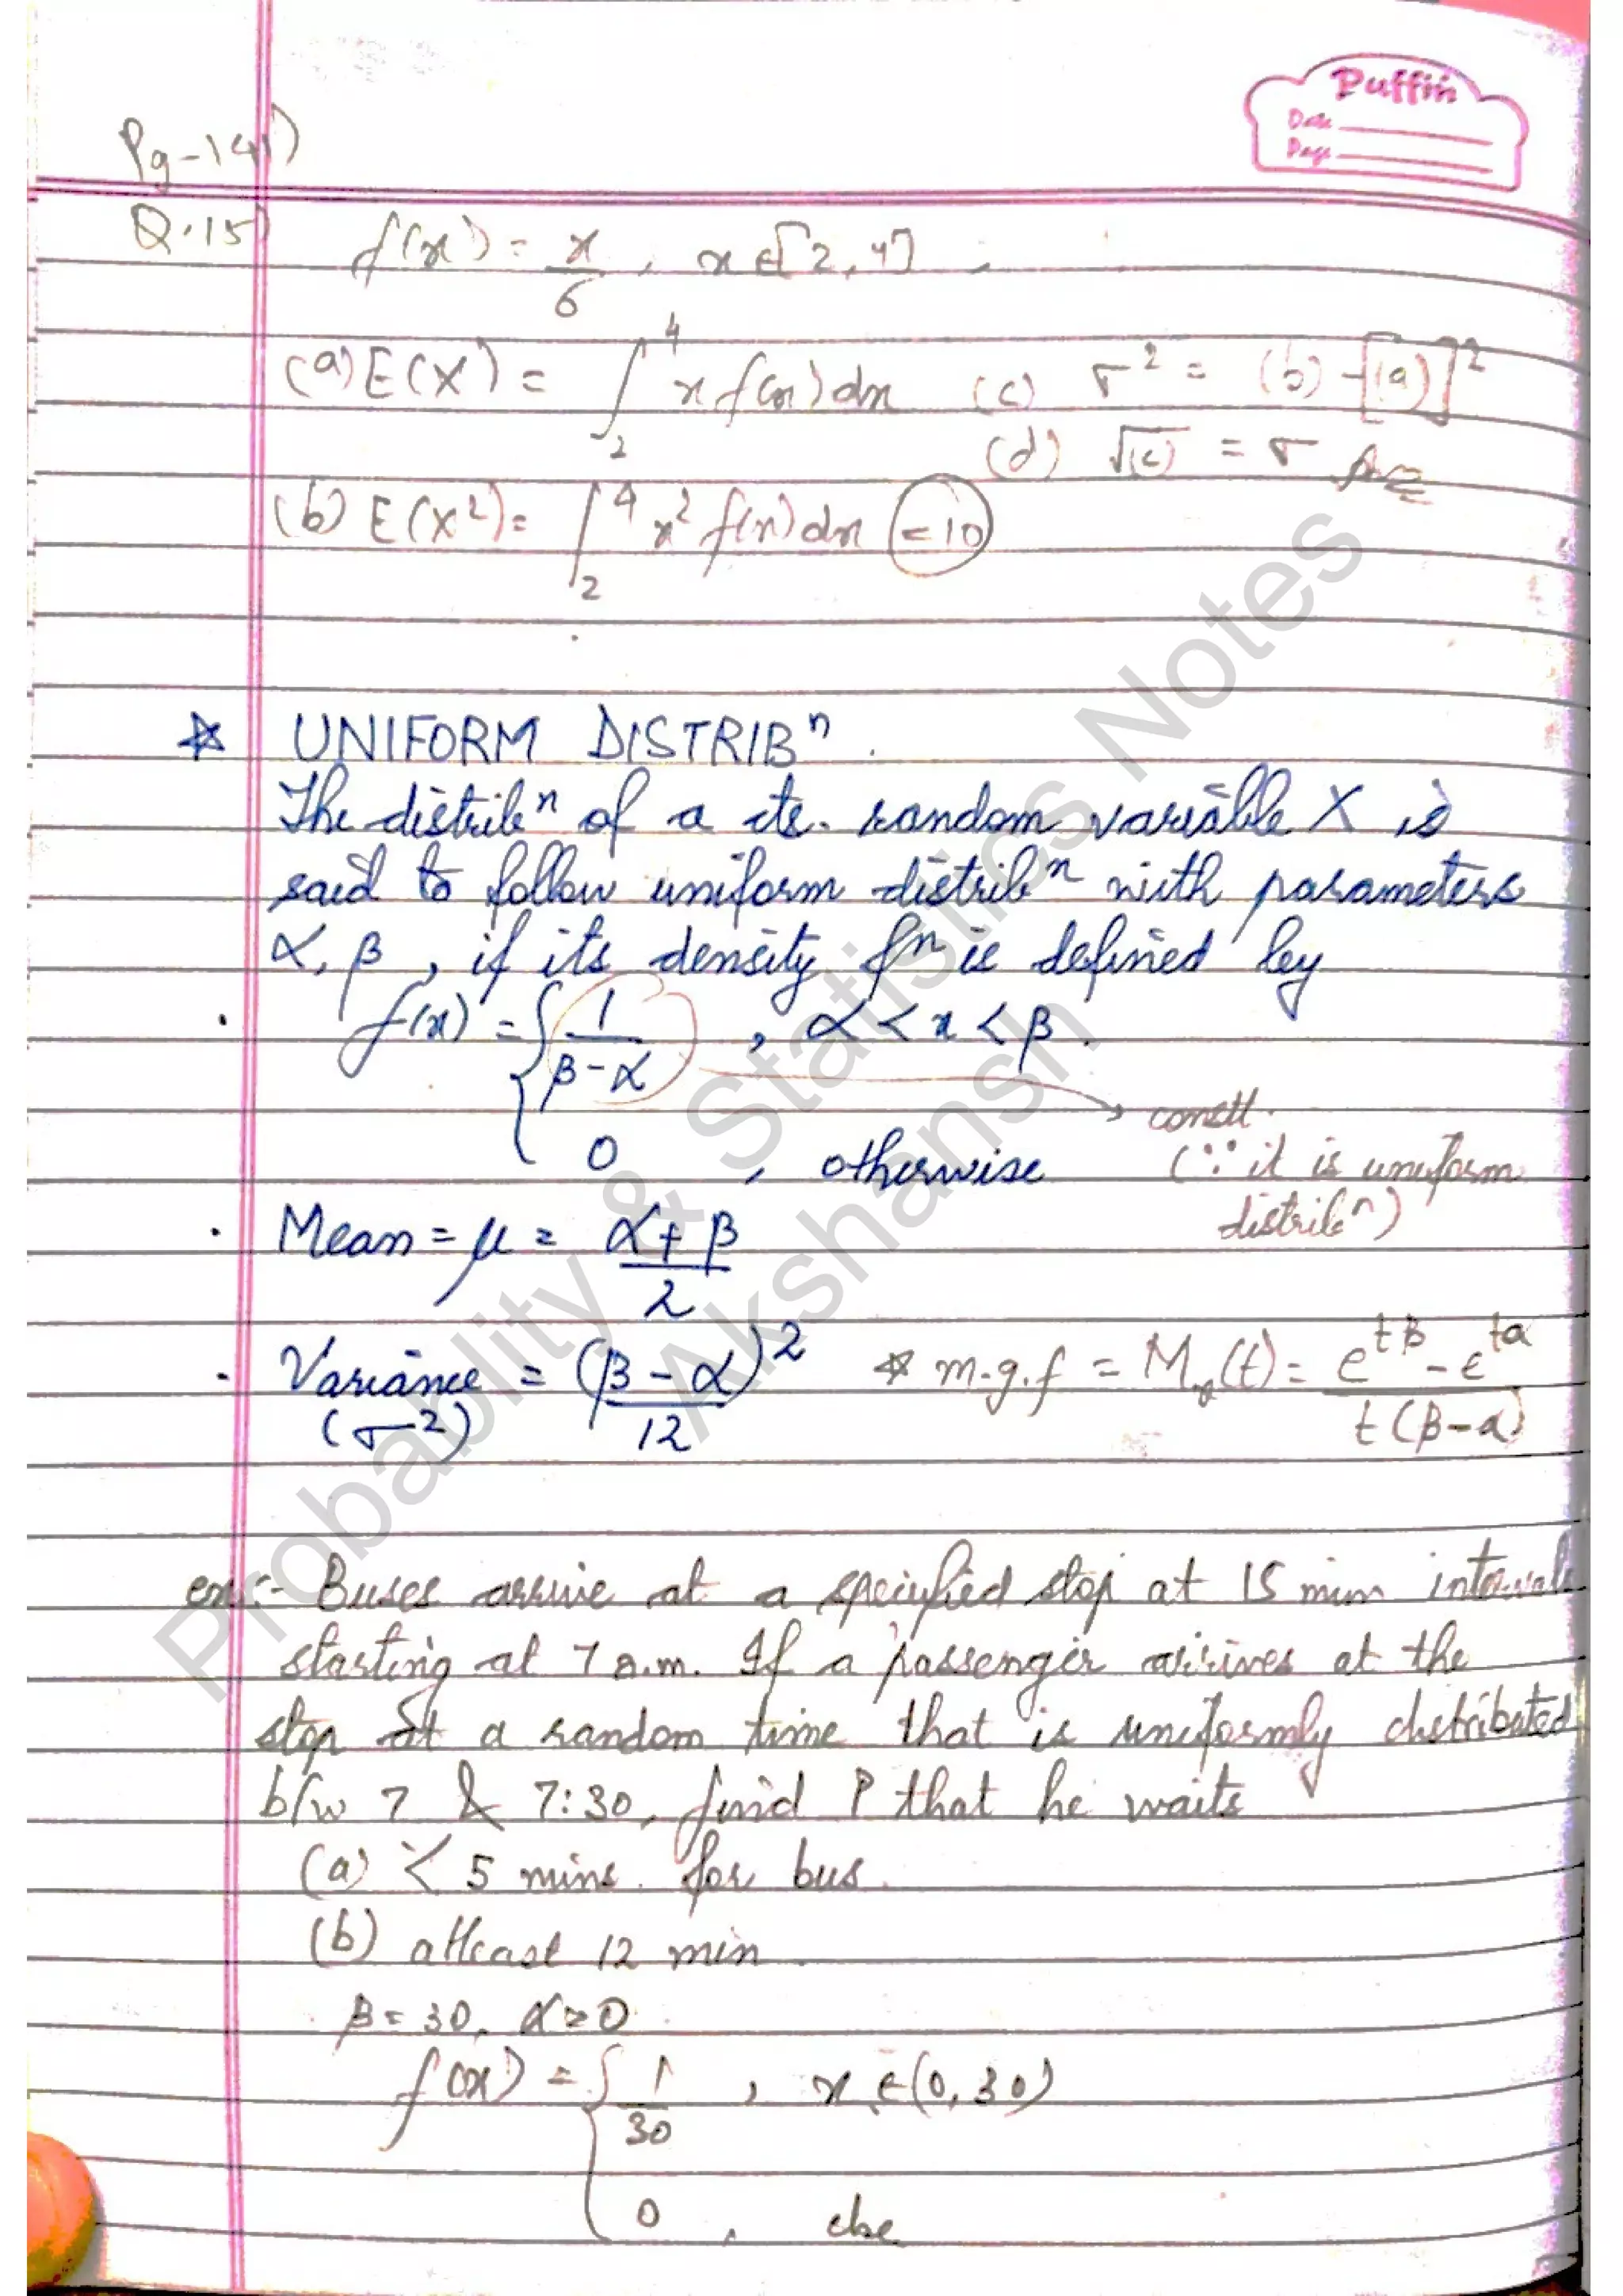 Puffin
Date
Page
Pg-141)
Q.15) f(x) = x/6 , x ∈ [2, 4] ,
(a) E(X) = ∫₂⁴ x f(x) dx (c) σ² = (b) - [(a)]²
(d) √(c) = σ
(b) E(X²) = ∫₂⁴ x² f(x) dx = 10
☆ UNIFORM DISTRIBⁿ.
The distribⁿ of a cts. random variable X is
said to follow uniform distribⁿ with parameters
α, β , if its density fⁿ is defined by
· f(x) = { 1/(β-α) , α < x < β .
→ constt.
0 , otherwise (∵ it is uniform
distribⁿ)
· Mean = μ = (α+β)/2
· Variance = (β-α)²/12 ☆ m.g.f = Mₓ(t) = (e^tβ - e^tα)/(t(β-α))
(σ²)
ex:- Buses arrive at a specified stop at 15 min intervals
starting at 7 a.m. If a passenger arrives at the
stop at a random time that is uniformly distributed
b/w 7 & 7:30, find P that he waits
(a) < 5 mins. for bus.
(b) atleast 12 min.
β = 30, α = 0
f(x) = { 1/30 , x ∈ (0, 30)
0 , else
Probability & Statistics Notes
Akshansh